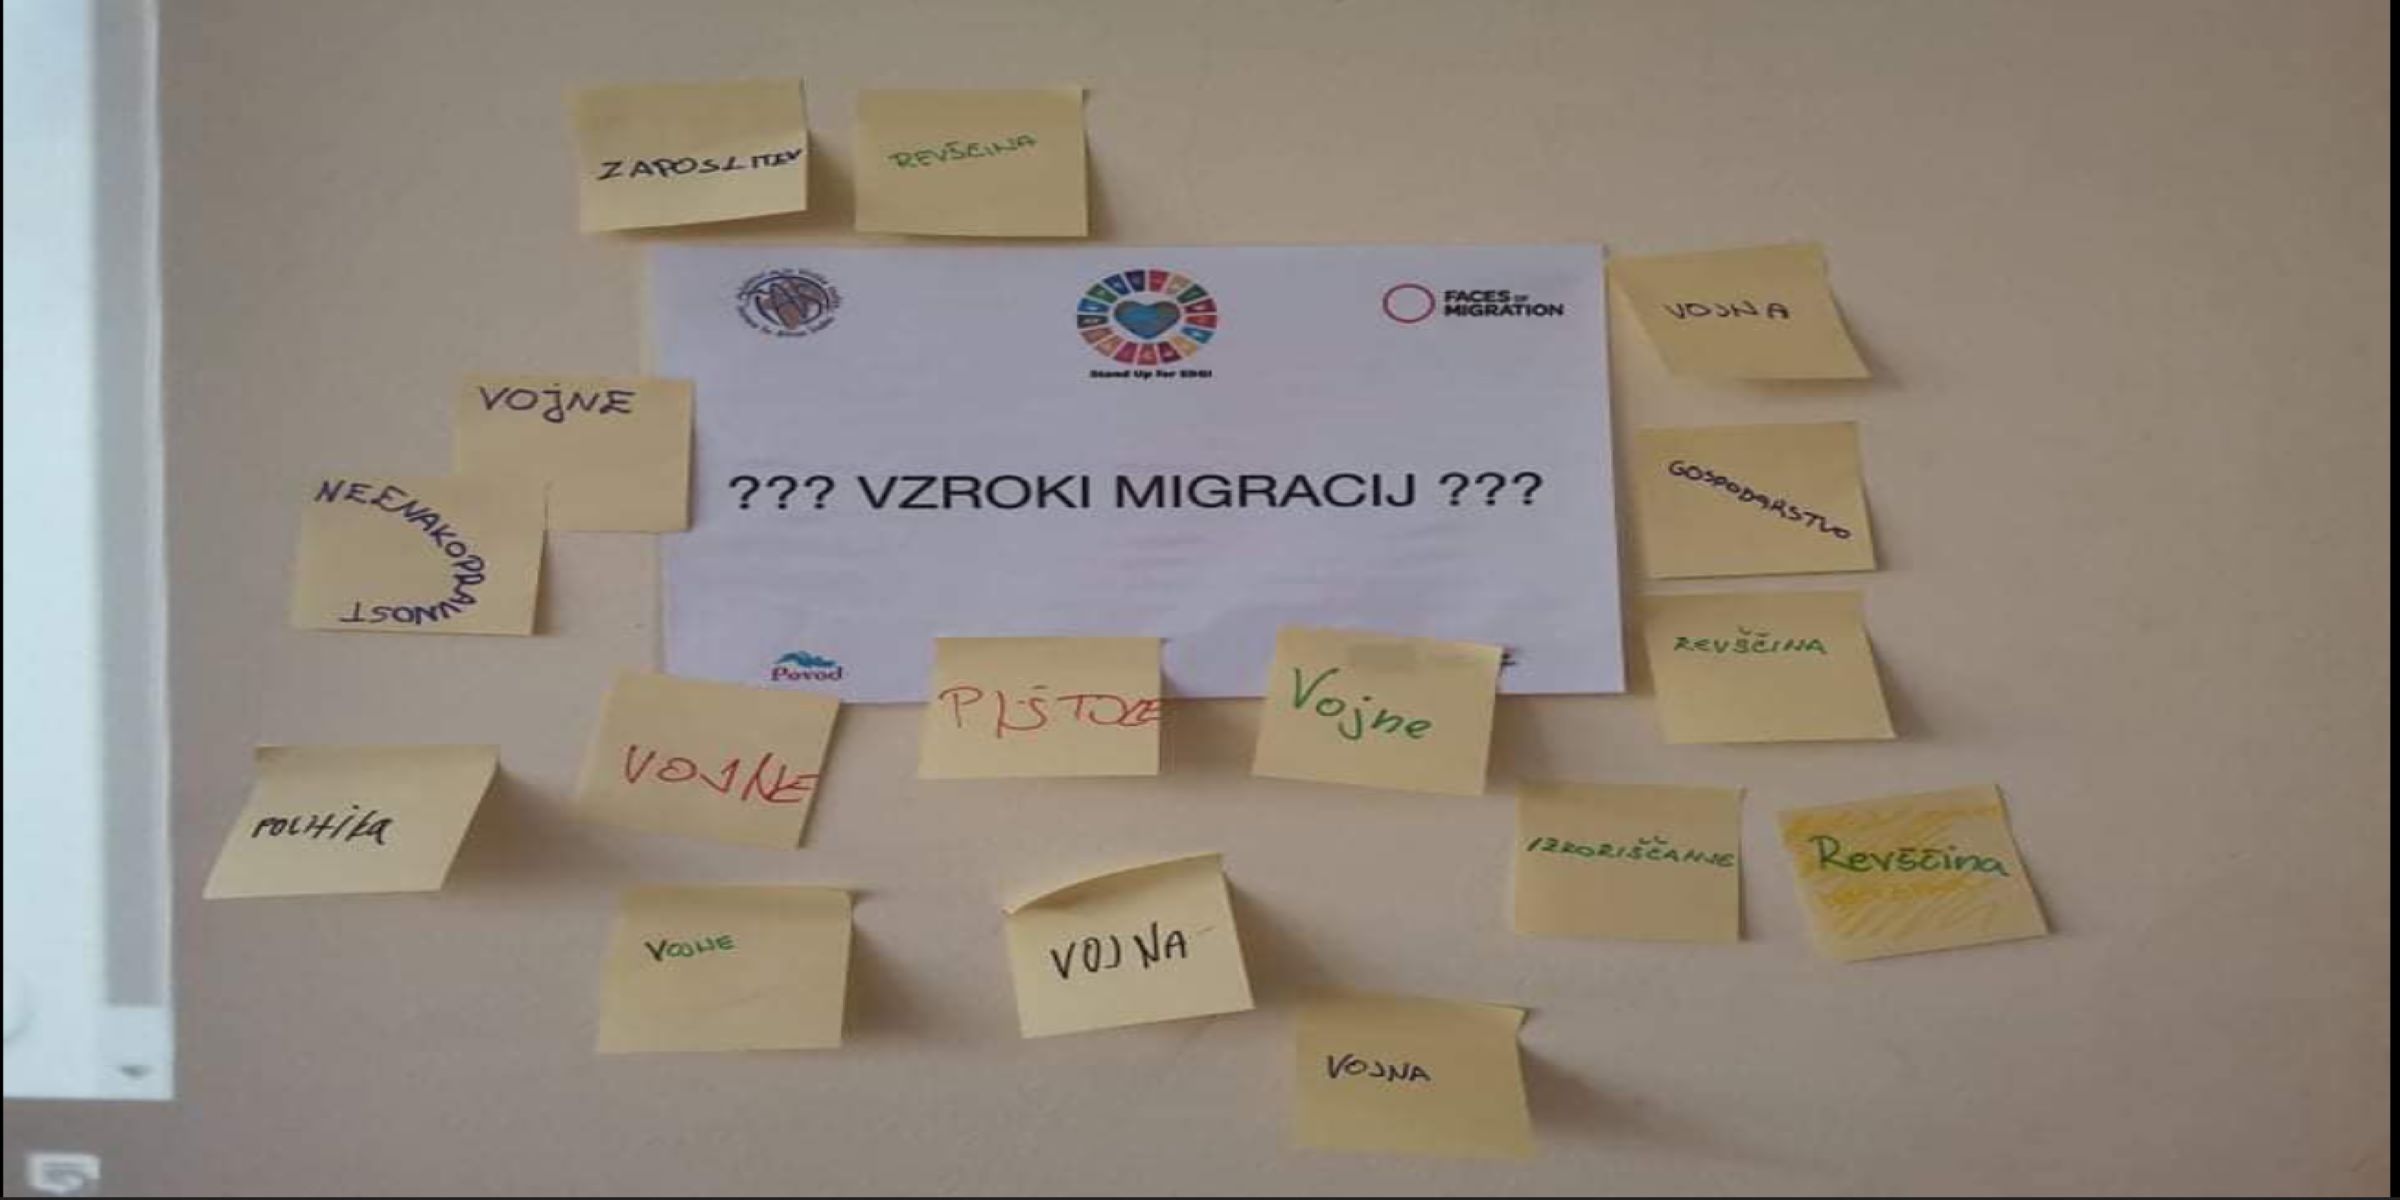 ZAPOSLITEV
REVŠČINA
FACES OF
MIGRATION
Stand Up For SDG!
VOJNA
VOJNE
??? VZROKI MIGRACIJ ???
GOSPODARSTVO
NEENAKOPRAVNOST
REVŠČINA
Povod
PIŠTOLE
Vojne
VOJNE
POLITIKA
IZKORIŠČANJE
Revščina
VOJNE
VOJNA
VOJNA